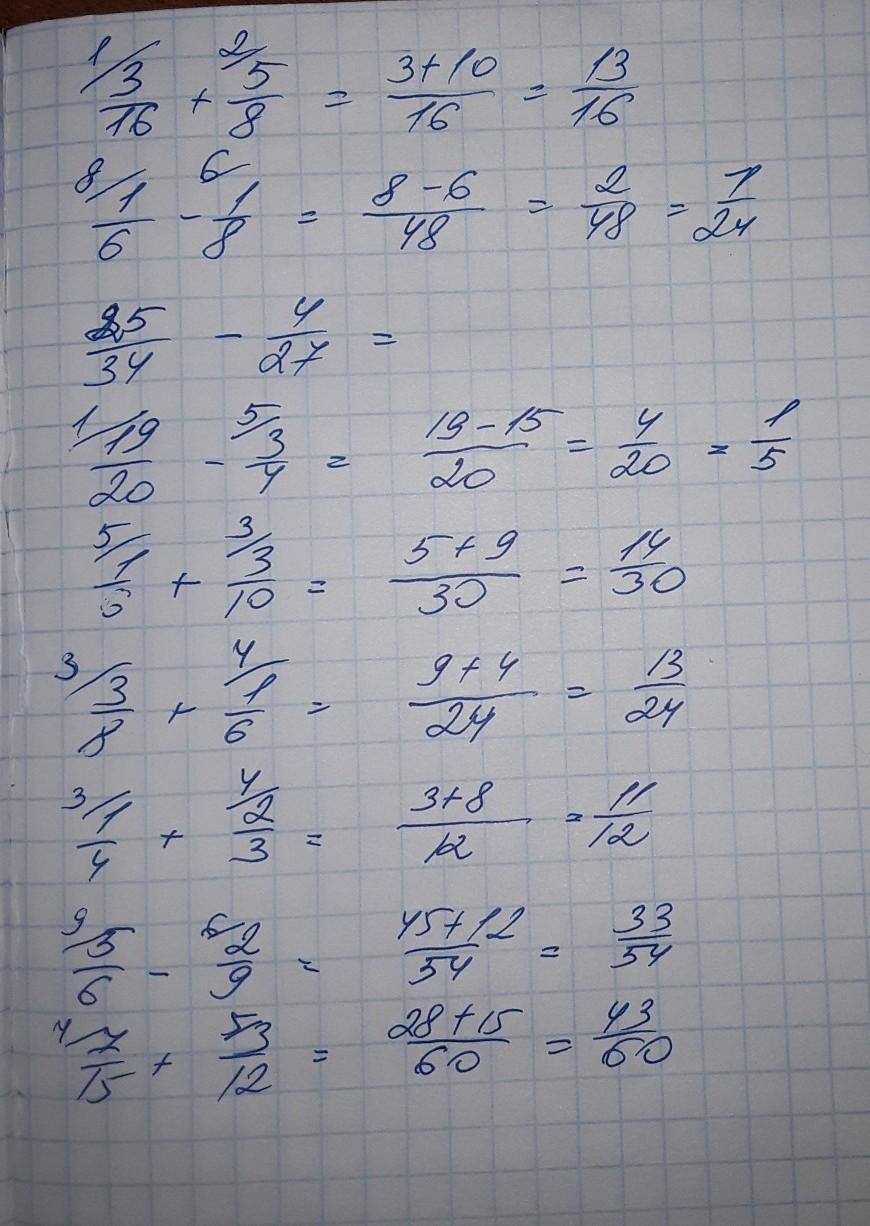 1/ 3/16 + 2/ 5/8 = (3+10)/16 = 13/16
8/ 1/6 - 6/ 1/8 = (8-6)/48 = 2/48 = 1/24
25/34 - 4/27 =
1/ 19/20 - 5/ 3/4 = (19-15)/20 = 4/20 = 1/5
5/ 1/6 + 3/ 3/10 = (5+9)/30 = 14/30
3/ 3/8 + 4/ 1/6 = (9+4)/24 = 13/24
3/ 1/4 + 4/ 2/3 = (3+8)/12 = 11/12
9/ 5/6 - 6/ 2/9 = (45+12)/54 = 33/54
4/ 7/15 + 5/ 3/12 = (28+15)/60 = 43/60